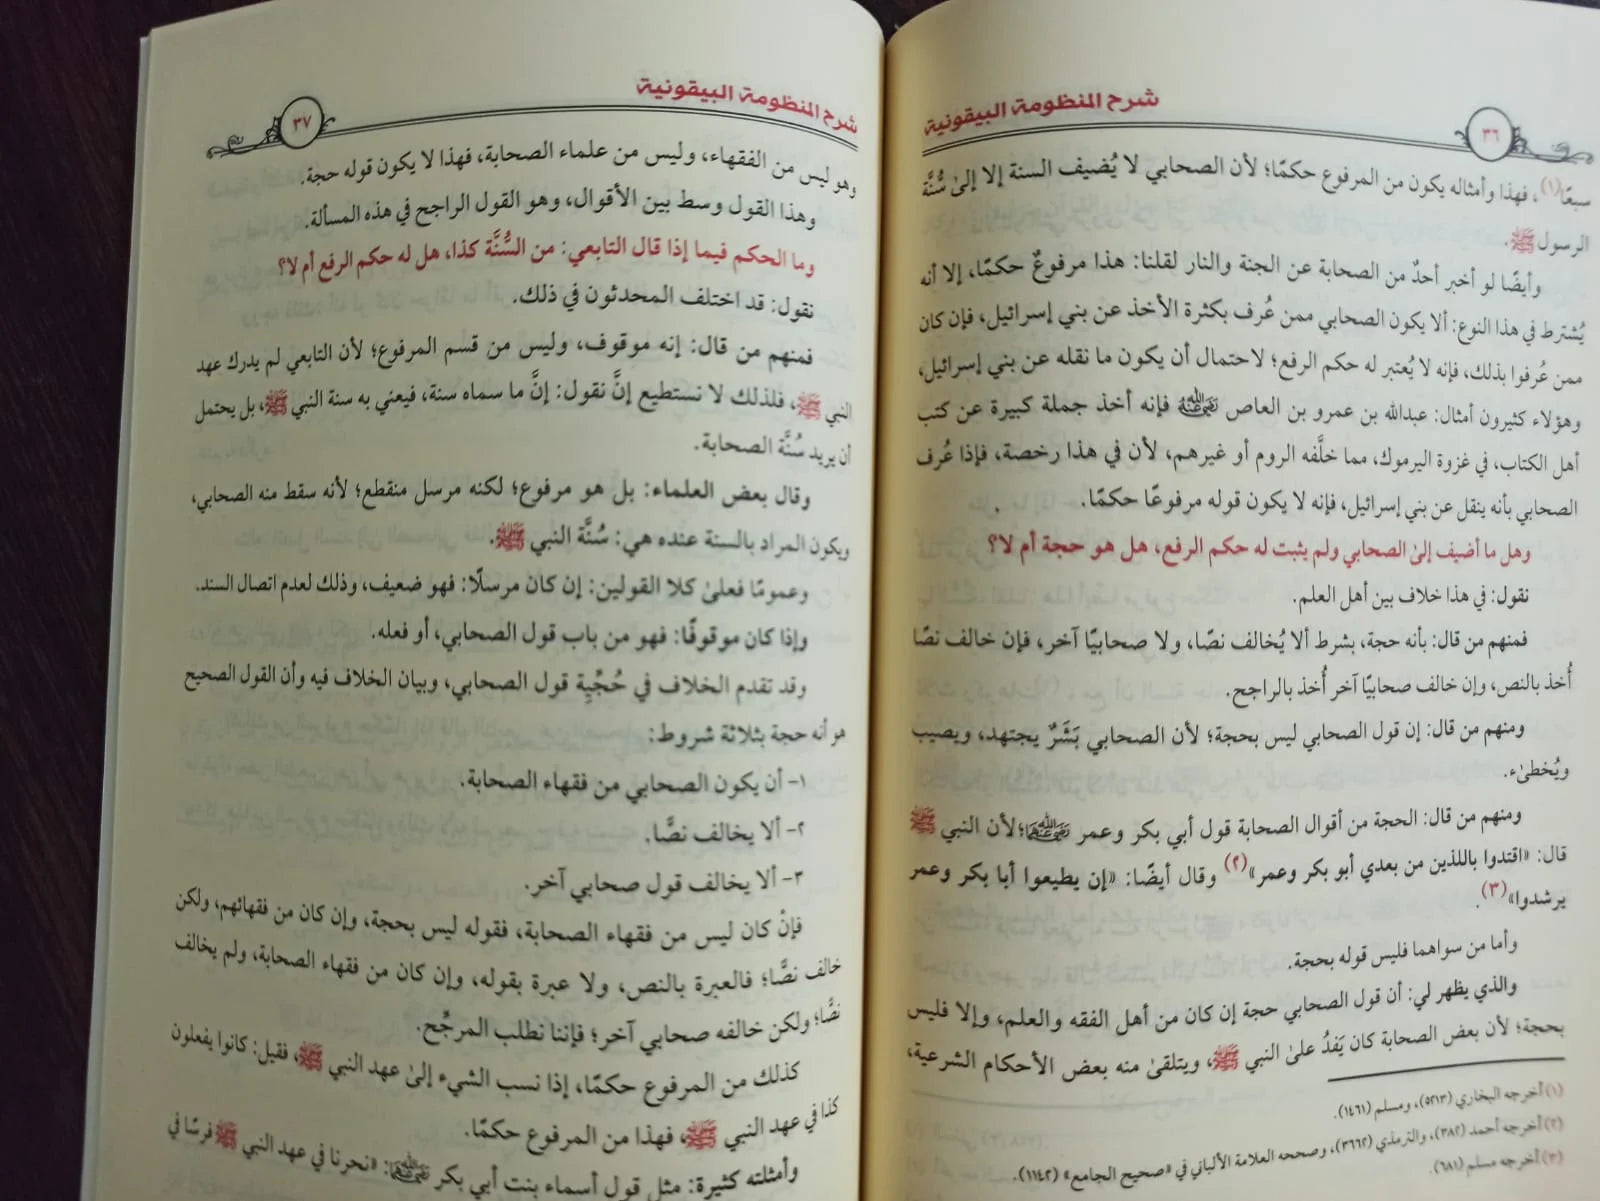 شرح المنظومة البيقونية
٣٦
سبعًا(١)، فهذا وأمثاله يكون من المرفوع حكمًا؛ لأن الصحابي لا يُضيف السنة إلا إلىٰ سُنَّة
الرسول ﷺ.
وأيضًا لو أخبر أحدٌ من الصحابة عن الجنة والنار لقلنا: هذا مرفوعٌ حكمًا، إلا أنه
يُشترط في هذا النوع: ألا يكون الصحابي ممن عُرف بكثرة الأخذ عن بني إسرائيل، فإن كان
ممن عُرفوا بذلك، فإنه لا يُعتبر له حكم الرفع؛ لاحتمال أن يكون ما نقله عن بني إسرائيل،
وهؤلاء كثيرون أمثال: عبدالله بن عمرو بن العاص ﵁ فإنه أخذ جملة كبيرة عن كتب
أهل الكتاب، في غزوة اليرموك، مما خلَّفه الروم أو غيرهم، لأن في هذا رخصة، فإذا عُرف
الصحابي بأنه ينقل عن بني إسرائيل، فإنه لا يكون قوله مرفوعًا حكمًا.
وهل ما أضيف إلىٰ الصحابي ولم يثبت له حكم الرفع، هل هو حجة أم لا؟
نقول: في هذا خلاف بين أهل العلم.
فمنهم من قال: بأنه حجة، بشرط ألا يُخالف نصًا، ولا صحابيًا آخر، فإن خالف نصًا
أُخذ بالنص، وإن خالف صحابيًا آخر أُخذ بالراجح.
ومنهم من قال: إن قول الصحابي ليس بحجة؛ لأن الصحابي بَشَرٌ يجتهد، ويصيب
ويُخطىء.
ومنهم من قال: الحجة من أقوال الصحابة قول أبي بكر وعمر ﵄؛ لأن النبي ﷺ
قال: «اقتدوا باللذين من بعدي أبو بكر وعمر»(٢) وقال أيضًا: «إن يطيعوا أبا بكر وعمر
يرشدوا»(٣).
وأما من سواهما فليس قوله بحجة.
والذي يظهر لي: أن قول الصحابي حجة إن كان من أهل الفقه والعلم، وإلا فليس
بحجة؛ لأن بعض الصحابة كان يَفدُ علىٰ النبي ﷺ، ويتلقىٰ منه بعض الأحكام الشرعية،
(١) أخرجه البخاري (٥٢١٣)، ومسلم (١٤٦١).
(٢) أخرجه أحمد (٣٨٢)، والترمذي (٣٦٦٢)، وصححه العلامة الألباني في «صحيح الجامع» (١١٤٢).
(٣) أخرجه مسلم (٦٨١).
شرح المنظومة البيقونية
٣٧
وهو ليس من الفقهاء، وليس من علماء الصحابة، فهذا لا يكون قوله حجة.
وهذا القول وسط بين الأقوال، وهو القول الراجح في هذه المسألة.
وما الحكم فيما إذا قال التابعي: من السُّنَّة كذا، هل له حكم الرفع أم لا؟
نقول: قد اختلف المحدثون في ذلك.
فمنهم من قال: إنه موقوف، وليس من قسم المرفوع؛ لأن التابعي لم يدرك عهد
النبي ﷺ، فلذلك لا نستطيع إنَّ نقول: إنَّ ما سماه سنة، فيعني به سنة النبي ﷺ، بل يحتمل
أن يريد سُنَّة الصحابة.
وقال بعض العلماء: بل هو مرفوع؛ لكنه مرسل منقطع؛ لأنه سقط منه الصحابي،
ويكون المراد بالسنة عنده هي: سُنَّة النبي ﷺ.
وعمومًا فعلىٰ كلا القولين: إن كان مرسلًا: فهو ضعيف، وذلك لعدم اتصال السند.
وإذا كان موقوفًا: فهو من باب قول الصحابي، أو فعله.
وقد تقدم الخلاف في حُجِّيِة قول الصحابي، وبيان الخلاف فيه وأن القول الصحيح
هو أنه حجة بثلاثة شروط:
١- أن يكون الصحابي من فقهاء الصحابة.
٢- ألا يخالف نصًّا.
٣- ألا يخالف قول صحابي آخر.
فإنْ كان ليس من فقهاء الصحابة، فقوله ليس بحجة، وإن كان من فقهائهم، ولكن
خالف نصًّا؛ فالعبرة بالنص، ولا عبرة بقوله، وإن كان من فقهاء الصحابة، ولم يخالف
نصًّا؛ ولكن خالفه صحابي آخر؛ فإننا نطلب المرجِّح.
كذلك من المرفوع حكمًا، إذا نسب الشيء إلىٰ عهد النبي ﷺ، فقيل: كانوا يفعلون
كذا في عهد النبي ﷺ، فهذا من المرفوع حكمًا.
وأمثلته كثيرة: مثل قول أسماء بنت أبي بكر ﵄: «نحرنا في عهد النبي ﷺ فرسًا في